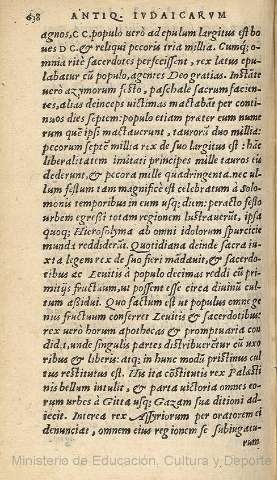 638 ANTIQ. IVDAICARVM
agnos, CC. populo verò ad epulum largitus est bo
ues DC. & reliqui pecoris tria millia. Cumq; om
omnia ritè sacerdotes perfecissent, rex latus epu
labatur cũ populo, agentes Deo gratias. Instãte
verò azymorum festo, paschale sacrum facien-
tes, alias deinceps victimas mactabãt per conti
nuos dies septem: populo etiam prater eum nume
rum quẽ ipsi mactauerunt, taurorũ duo millia:
pecorum septẽ millia rex de suo largitus est: hãc
liberalitatem imitati principes mille tauros eis
dederunt, & pecora mille quadringenta. nec ul-
lum festum tam magnificè est celebratum à Solo-
monis temporibus in eum usq; diem: peracto festo
urbem egressi totam regionem lustrauerũt, ipsa
quoq; Hierosolyma ab omni idolorum spurcicie
munda reddiderũt. Quotidiana deinde sacra iu-
xta legem rex de suo fieri mãdauit, & sacerdo-
tibus ac Leuitis à populo decimas reddi cũ pri-
mitijs fructuum, ut possent esse circa diuinũ cul-
tum assidui. Quo factum est ut populus omne ge
nus fructuum conferret Leuitis & sacerdotibus:
rex verò horum apothecas & promptuaria con
didit, unde singulis partes distribuerẽtur cũ uxo
ribus & liberis: atq; in hunc modũ pristinus cul
tus restitutus est. His ita cõstitutis rex Palæsti
nis bellum intulit, & parta victoria omnes eo-
rum urbes à Gitta usq; Gazam sua ditioni ad-
iecit. Interea rex Assyriorum per oratorem ei
denunciat, omnem eius regionem se subiugatu-
rum
Ministerio de Educación, Cultura y Deporte